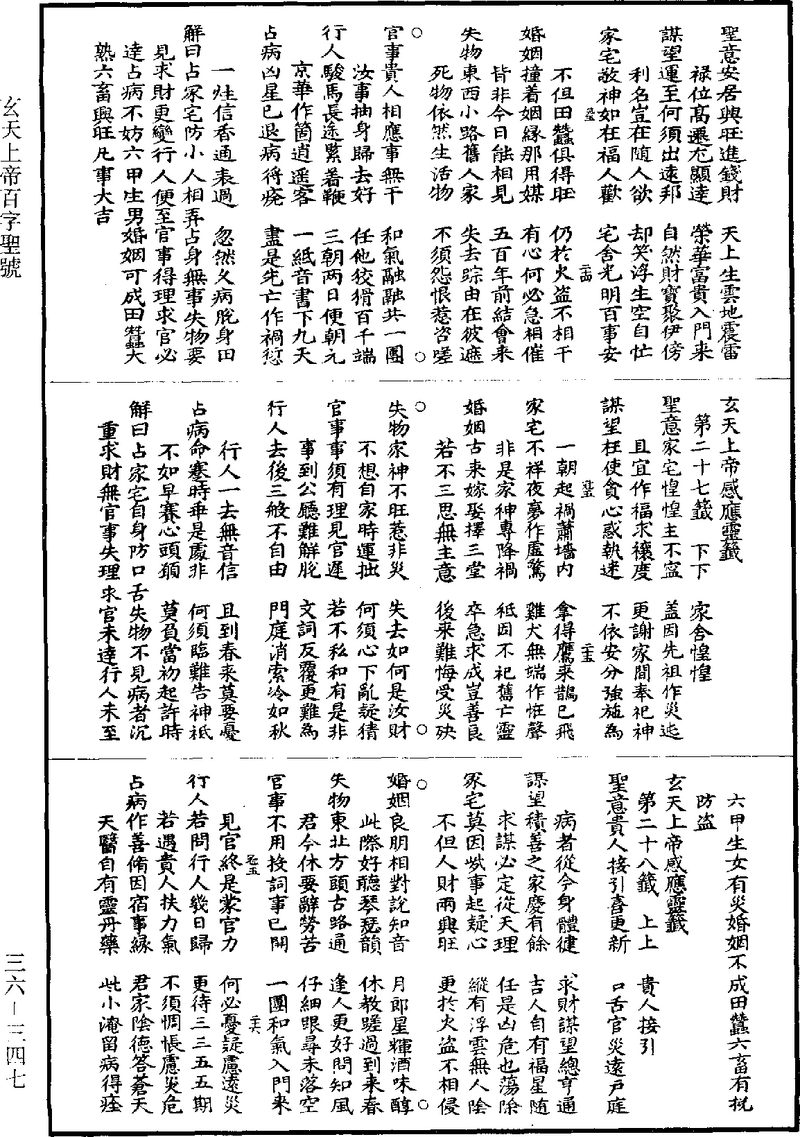 聖意安居興旺進錢財　天上生雲地震雷
祿位高遷尤顯達　榮華富貴入門來
謀望運至何須出遠邦　自然財寶聚伊傍
利名豈在隨人欲　却笑浮生空自忙
家宅敬神如在福人歡　宅舍光明百事安
不但田蠶俱得旺　仍於火盜不相干
婚姻撞着姻緣那用媒　有心何必急相催
皆非今日能相見　五百年前結會來
失物東西小路舊人家　失去踪由在彼遮
死物依然生活物　不須怨恨惹咨嗟
官事貴人相應事無干　和氣融融共一團
汝事抽身歸去好　任他狡猾百千端
行人駿馬長途緊着鞭　三朝兩日便朝元
京華作箇逍遥客　一紙音書下九天
占病凶星已退病待痊　盡是先亡作禍愆
一炷信香通表過　忽然久病脫身田
解曰占家宅防小人相弄占身無事失物要
見求財更變行人便至官事得理求官必
達占病不妨六甲生男婚姻可成田蠶大
熟六畜興旺凡事大吉
玄天上帝感應靈籤
第二十七籤　下下　家舍惶惶
聖意家宅惶惶主不寧　蓋因先祖作災迍
且宜作福求禳度　更謝家間奉祀神
謀望枉使貪心惑執迷　不依安分強施為
一朝起禍蕭墻内　拿得鷹來鵲已飛
家宅不祥夜夢作虛驚　雞犬無端作怪聲
非是家神專降禍　祗因不祀舊亡靈
婚姻古來嫁娶擇三堂　卒急求成豈善良
若不三思無主意　後來難悔受災殃
失物家神不旺惹非災　失去如何是汝財
不想自家時運拙　何須心下亂疑猜
官事事須有理見官遲　若不私和有是非
事到公廳難解脫　文詞反覆更難為
行人去後三般不自由　門庭消索冷如秋
行人一去無音信　且到春來莫要憂
占病命蹇時乖是處非　何須臨難告神祇
不如早賽心頭願　莫負當初起許時
解曰占家宅自身防口舌失物不見病者沉
重求財無官事失理求官未達行人未至
六甲生女有災婚姻不成田蠶六畜有損
防盜
玄天上帝感應靈籤
第二十八籤　上上　貴人接引
聖意貴人接引喜更新　口舌官災遠戶庭
病者從今身體健　求財謀望總亨通
謀望積善之家慶有餘　吉人自有福星隨
求謀必定從天理　任是凶危也蕩除
家宅莫因些事起疑心　縱有浮雲無人陰
不但人財兩興旺　更於火盜不相侵
婚姻良朋相對說知音　月郎星輝酒味醇
此際好聽琴瑟韻　休教蹉過到來春
失物東北方頭古路通　逢人更好問知風
君今休要辭勞苦　仔細眼尋未落空
官事不用投詞事已開　一團和氣入門來
見官終是蒙官力　何必憂疑慮遠災
行人若問行人幾日歸　更待三三五五期
若遇貴人扶力氣　不須惆悵慮災危
占病作善脩因宿事緣　君家陰德答蒼天
天醫自有靈丹藥　些小淹留病得痊
玄天上帝百字聖號
三六－三四七